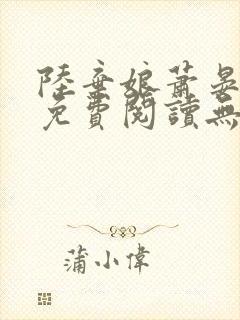 陸棄娘蕭晏
免費閱讀無
蒲小偉